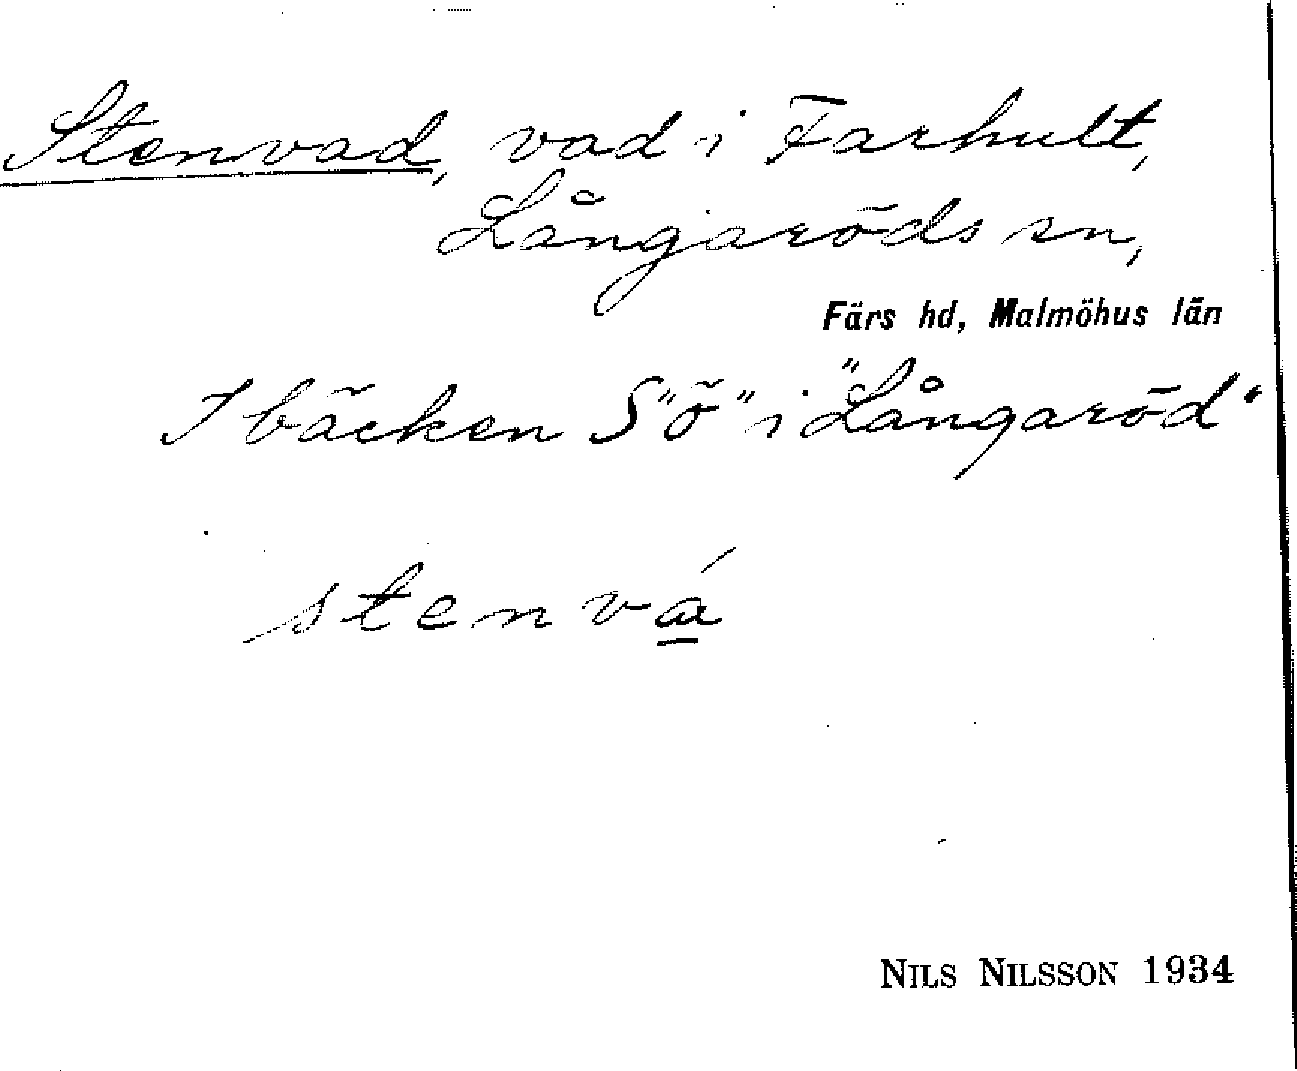 Stenvad, vad i Farhult,
Långaröds sn,
Färs hd, Malmöhus län
I bäcken S "ö" i "Långaröd"
stenvá
NILS NILSSON 1934